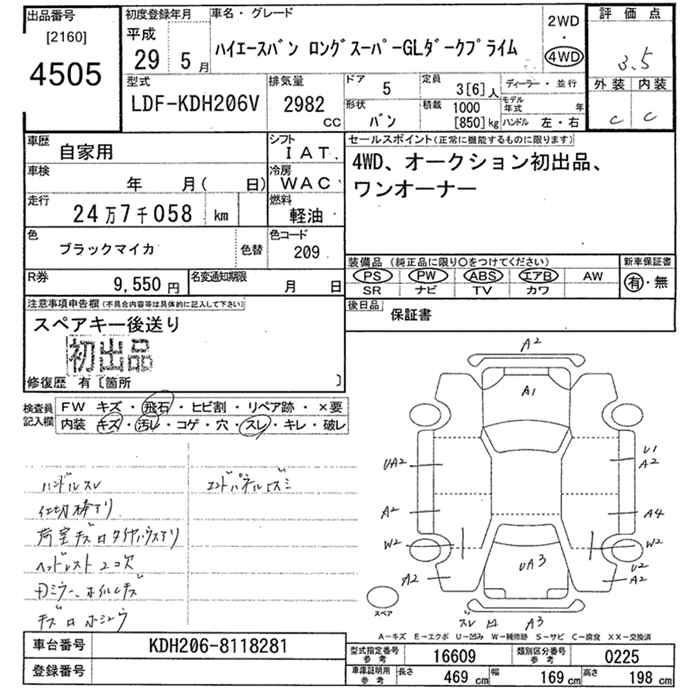 出品番号
[2160]
4505
初度登録年月
平成
29 5月
車名・グレード
ハイエースバン ロングスーパーGLダークプライム
2WD
・
4WD
評価点
3.5
外装 内装
C C
型式
LDF-KDH206V
排気量
2982
CC
ドア 5
定員 3[6]人
形状 バン
積載 1000
[850]kg
ディーラー・並行
モデル年式 年
ハンドル 左・右
車歴 自家用
シフト IAT.
車検 年 月( 日)
冷房 WAC
走行 24万7千058 km
燃料 軽油
色 ブラックマイカ 色替
色コード 209
R券 9,550円
名変通知期限 月 日
セールスポイント(正常に機能するものに限ります)
4WD、オークション初出品、
ワンオーナー
装備品(純正品に限り○をつけてください)
PS PW ABS エアB AW
SR ナビ TV カワ
新車保証書
有・無
後日品 保証書
注意事項申告欄(不具合内容等は具体的に記入して下さい)
スペアキー後送り
初出品
修復歴 有〔箇所 〕
検査員記入欄
FW キズ・飛石・ヒビ割・リペア跡・×要
内装 キズ・汚レ・コゲ・穴・スレ・キレ・破レ
ハンドルスレ
エンドパネルユズミ
仕切棒アリ
荷室キズロタイヤハウスアリ
ヘッドレスト2コ欠
キズロ
A2
A1
UA2
U1
A2
A2
A4
W2
W2
UA3
A2
U2
A2
スレ
A3
スペア
A－キズ E－エクボ U－凹み W－補修跡 S－サビ C－腐食 XX－交換済
車台番号 KDH206-8118281
登録番号
型式指定番号 参考 16609
類別区分番号 参考 0225
車庫証明用 参考 長さ 469 cm 幅 169 cm 高さ 198 cm